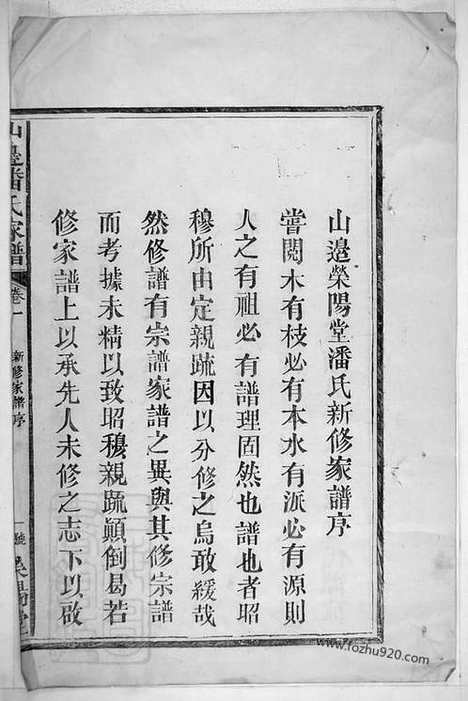 山邉榮陽堂潘氏新修家譜序
嘗閱木有枝必有本水有派必有源則
人之有祖必有譜理固然也譜也者昭
穆所由定親疏因以分修之烏敢緩哉
然修譜有宗譜家譜之異與其修宗譜
而考據未精以致昭穆親疏顚倒曷若
修家譜上以承先人未修之志下以啟
山邉潘氏家譜
卷一
新修家譜序
www.fozhu920.com